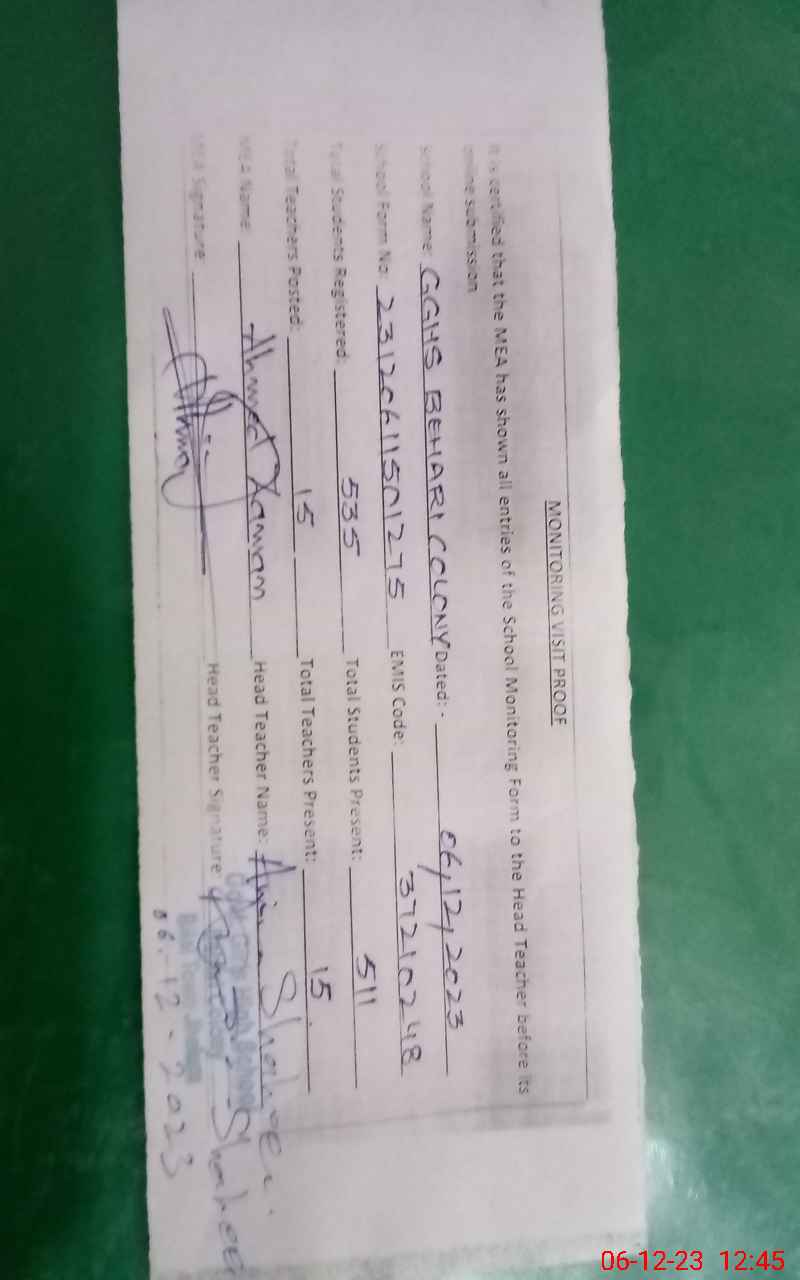 MONITORING VISIT PROOF
It is certified that the MEA has shown all entries of the School Monitoring Form to the Head Teacher before its
online submission
School Name: GGHS BEHARI COLONY Dated: - 06/12/2023
School Form No: 23120611501275 EMIS Code: 37210248
Total Students Registered: 535 Total Students Present: 511
Total Teachers Posted: 15 Total Teachers Present: 15
MEA Name: Ahmed Head Teacher Name: Shaheen
MEA Signature: Head Teacher Signature: Shaheen
06.12.2023
06-12-23 12:45